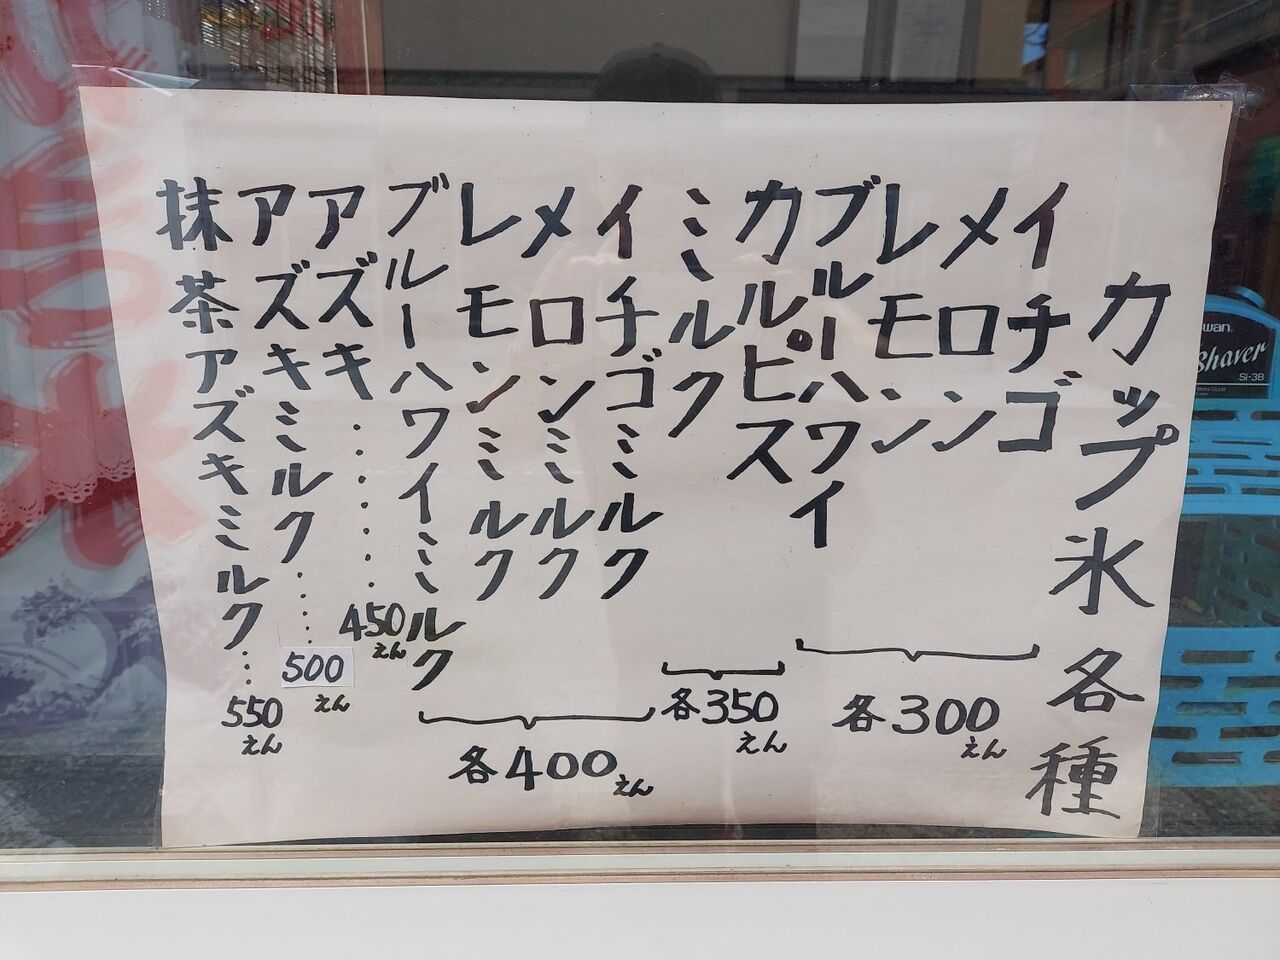 カップ氷各種
イチゴ
メロン
レモン
ブルーハワイ
各300えん
カルピス
ミルク
各350えん
イチゴミルク
メロンミルク
レモンミルク
ブルーハワイミルク
各400えん
アズキ......450えん
アズキミルク....500えん
抹茶アズキミルク...550えん
wan
Shaver
SI-3B